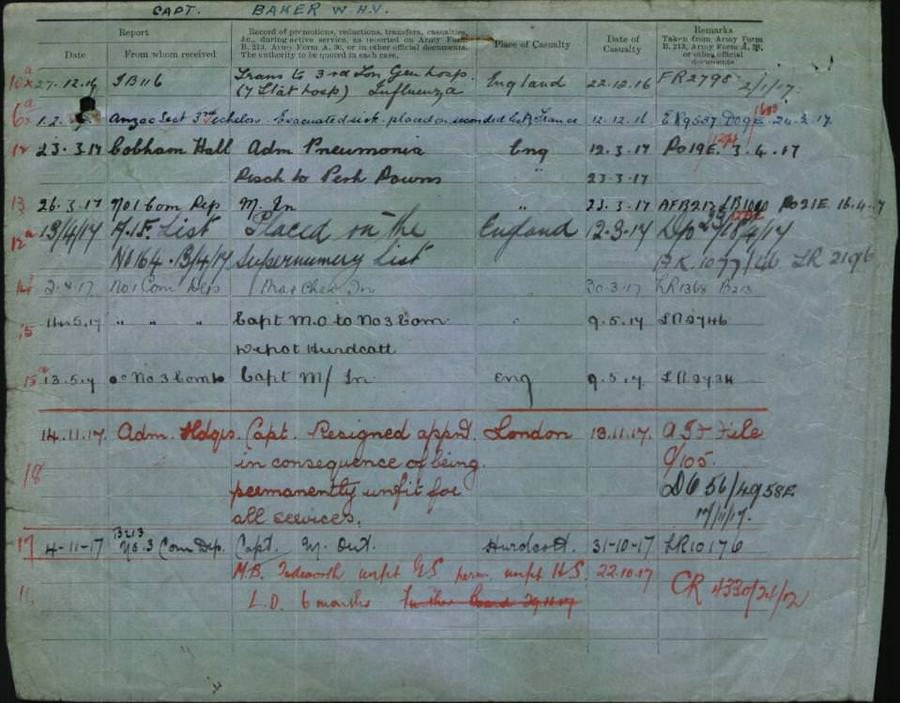 CAPT. BAKER W.H.V.
Report
Record of promotions, reductions, transfers, casualties,
&c., during active service, as reported on Army Form
B. 213, Army Form A. 36, or in other official documents.
The authority to be quoted in each case.
Place of Casualty
Date of
Casualty
Remarks
Taken from Army Form
B. 213, Army Form A. 36,
or other official
documents
Date
From whom received
10 27.12.16 Trans to 3rd Lon Gen hosp. England 22.12.16 FR2798 2/1/17.
(7 Stat hosp) Influenza
6 Anzac Sect 3rd echelon. Evacuated sick placed on seconded list France 12.12.16
12 23.3.17 Cobham Hall Adm Pneumonia Eng 12.3.17 Po19E. 3.4.17
Disch to Perh Downs " 23.3.17
13 26.3.17 No 1 Com Dep M. In " 23.3.17 AFB213 Po21E 16.4.17
12a 13/4/17 A.I.F. List Placed on the England 12.3.17
No 164. 13/4/17 Supernumery List
2.4.17 No 1 Com Dep In " 30.3.17 LR1368 B213
15 14.5.17 " " " Capt M.O to No 3 Com " 9.5.17 LR2746
Depot Hurdcott
15a 13.5.17 oc No 3 Comb Capt M/ In Eng 9.5.17. LR2734
14.11.17. Adm. Hdqrs. Capt. Resigned appnt. London 13.11.17. AIF File
18 in consequence of being 9/105.
permanently unfit for D6 56/49 58E
all services. 17/11/17.
17 4-11-17 B213 No. 3 Com Dep. Capt. M. Out. Hurdcott. 31-10-17 LR10176
16 M.B. Tidworth unfit GS perm. unfit H.S. 22.10.17 CR 4330/24/12
L.D. 6 months Further Board 29.11.17